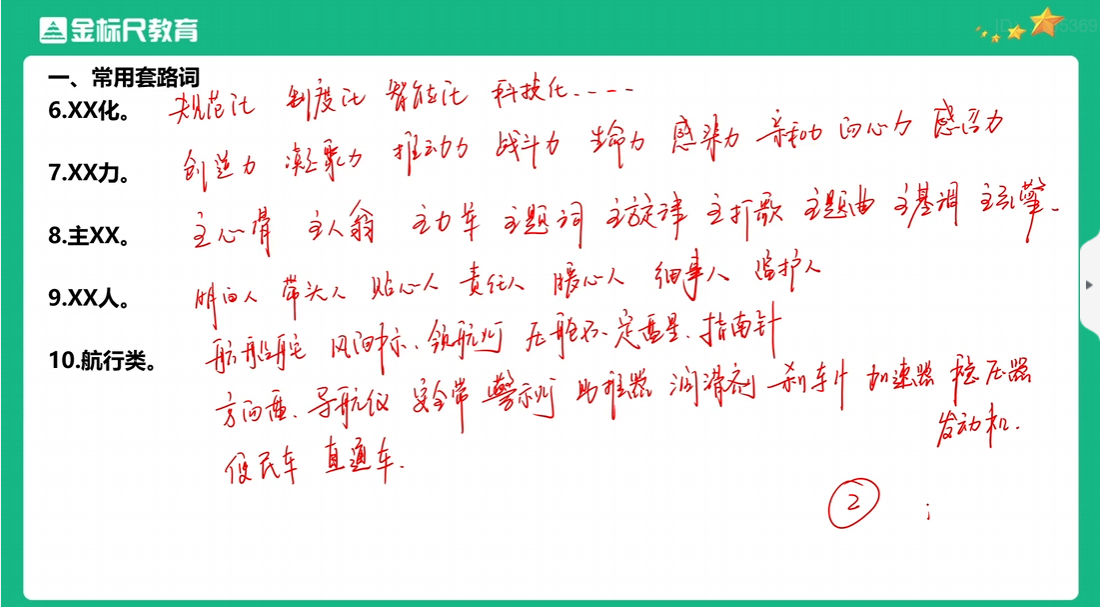 金标尺教育
一、常用套路词
6.XX化。 规范化 制度化 智能化 科技化……
7.XX力。 创造力 凝聚力 推动力 战斗力 生命力 感染力 亲和力 向心力 感召力
8.主XX。 主心骨 主人翁 主力军 主题词 主旋律 主打歌 主题曲 主基调 主引擎.
9.XX人。 明白人 带头人 贴心人 责任人 暖心人 细事人 监护人
10.航行类。 航船舵 风向标、领航灯 压舱石、定盘星、指南针
方向盘、导航仪 安全带 警示灯 助推器 润滑剂 刹车片 加速器 稳压器
发动机.
便民车 直通车.
2